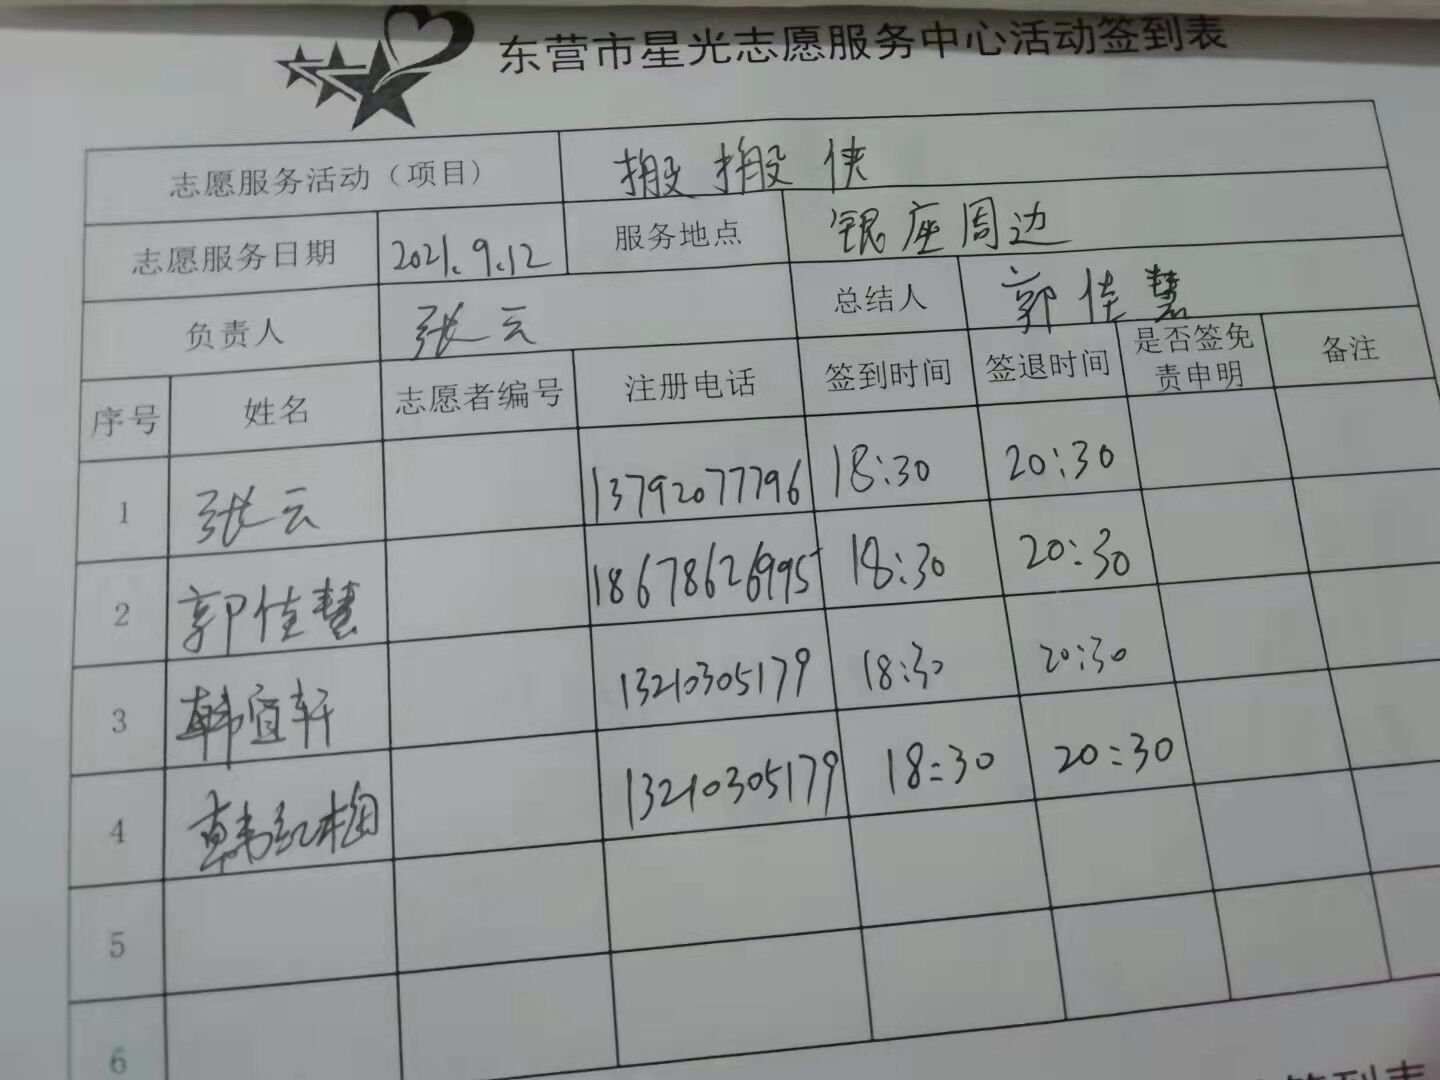 东营市星光志愿服务中心活动签到表
志愿服务活动（项目） 搬搬侠
志愿服务日期 2021.9.12 服务地点 银座周边
负责人 张云 总结人 郭佳慧
序号 姓名 志愿者编号 注册电话 签到时间 签退时间 是否签免责申明 备注
1 张云 13792077796 18:30 20:30
2 郭佳慧 18678626995 18:30 20:30
3 韩宜轩 13210305179 18:30 20:30
4 韩红梅 13210305179 18:30 20:30
5
6
签到表